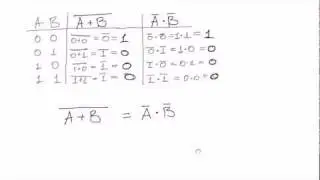 A B A̅+̅B̅ A̅·B̅
0 0 0̅+̅0̅=0̅=1 0̅·0̅=1·1=1
0 1 0̅+̅1̅=1̅=0 0̅·1̅=1·0=0
1 0 1̅+̅0̅=1̅=0 1̅·0̅=0·1=0
1 1 1̅+̅1̅=1̅=0 1̅·1̅=0·0=0
A̅+̅B̅ = A̅·B̅